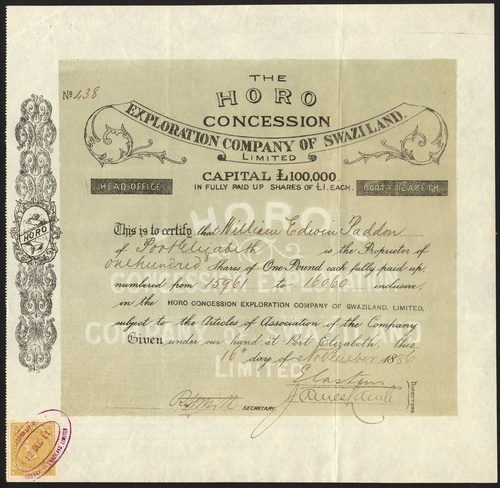 THE
HORO
CONCESSION
EXPLORATION COMPANY OF SWAZILAND.
LIMITED
CAPITAL £100,000.
IN FULLY PAID UP SHARES OF £1. EACH.
HEAD OFFICE
PORT ELIZABETH.
No. 438
HORO
This is to certify that William Edwin Paddon
of Port Elizabeth is the Proprietor of
one hundred Shares of One Pound each fully paid up
numbered from 15961 to 16060 inclusive,
in the HORO CONCESSION EXPLORATION COMPANY OF SWAZILAND, LIMITED,
subject to the Articles of Association of the Company
Given under our hand at Port Elizabeth this
16th day of November 1886
SECRETARY.
DIRECTORS
HORO
LIMITED